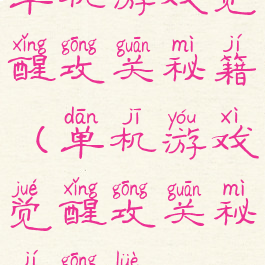 单机游戏觉
xǐng gōng guān mì jí
醒攻关秘籍
dān jī yóu xì
(单机游戏
jué xǐng gōng guān mì
觉醒攻关秘
jí gōng lüè